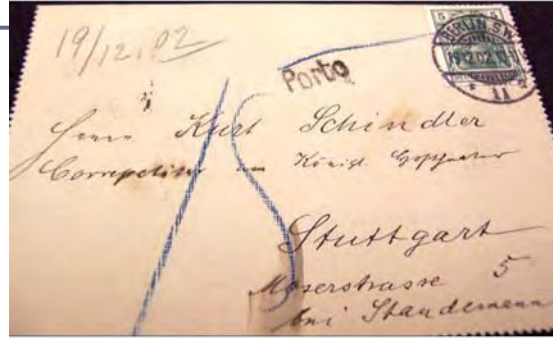 19/12.02
Porto
5 5
BERLIN S.W.
11
Herrn Kurt Schindler
Correpetitor am Königl. Hoftheater
15
Stuttgart
Moserstrasse 5
bei Standemann